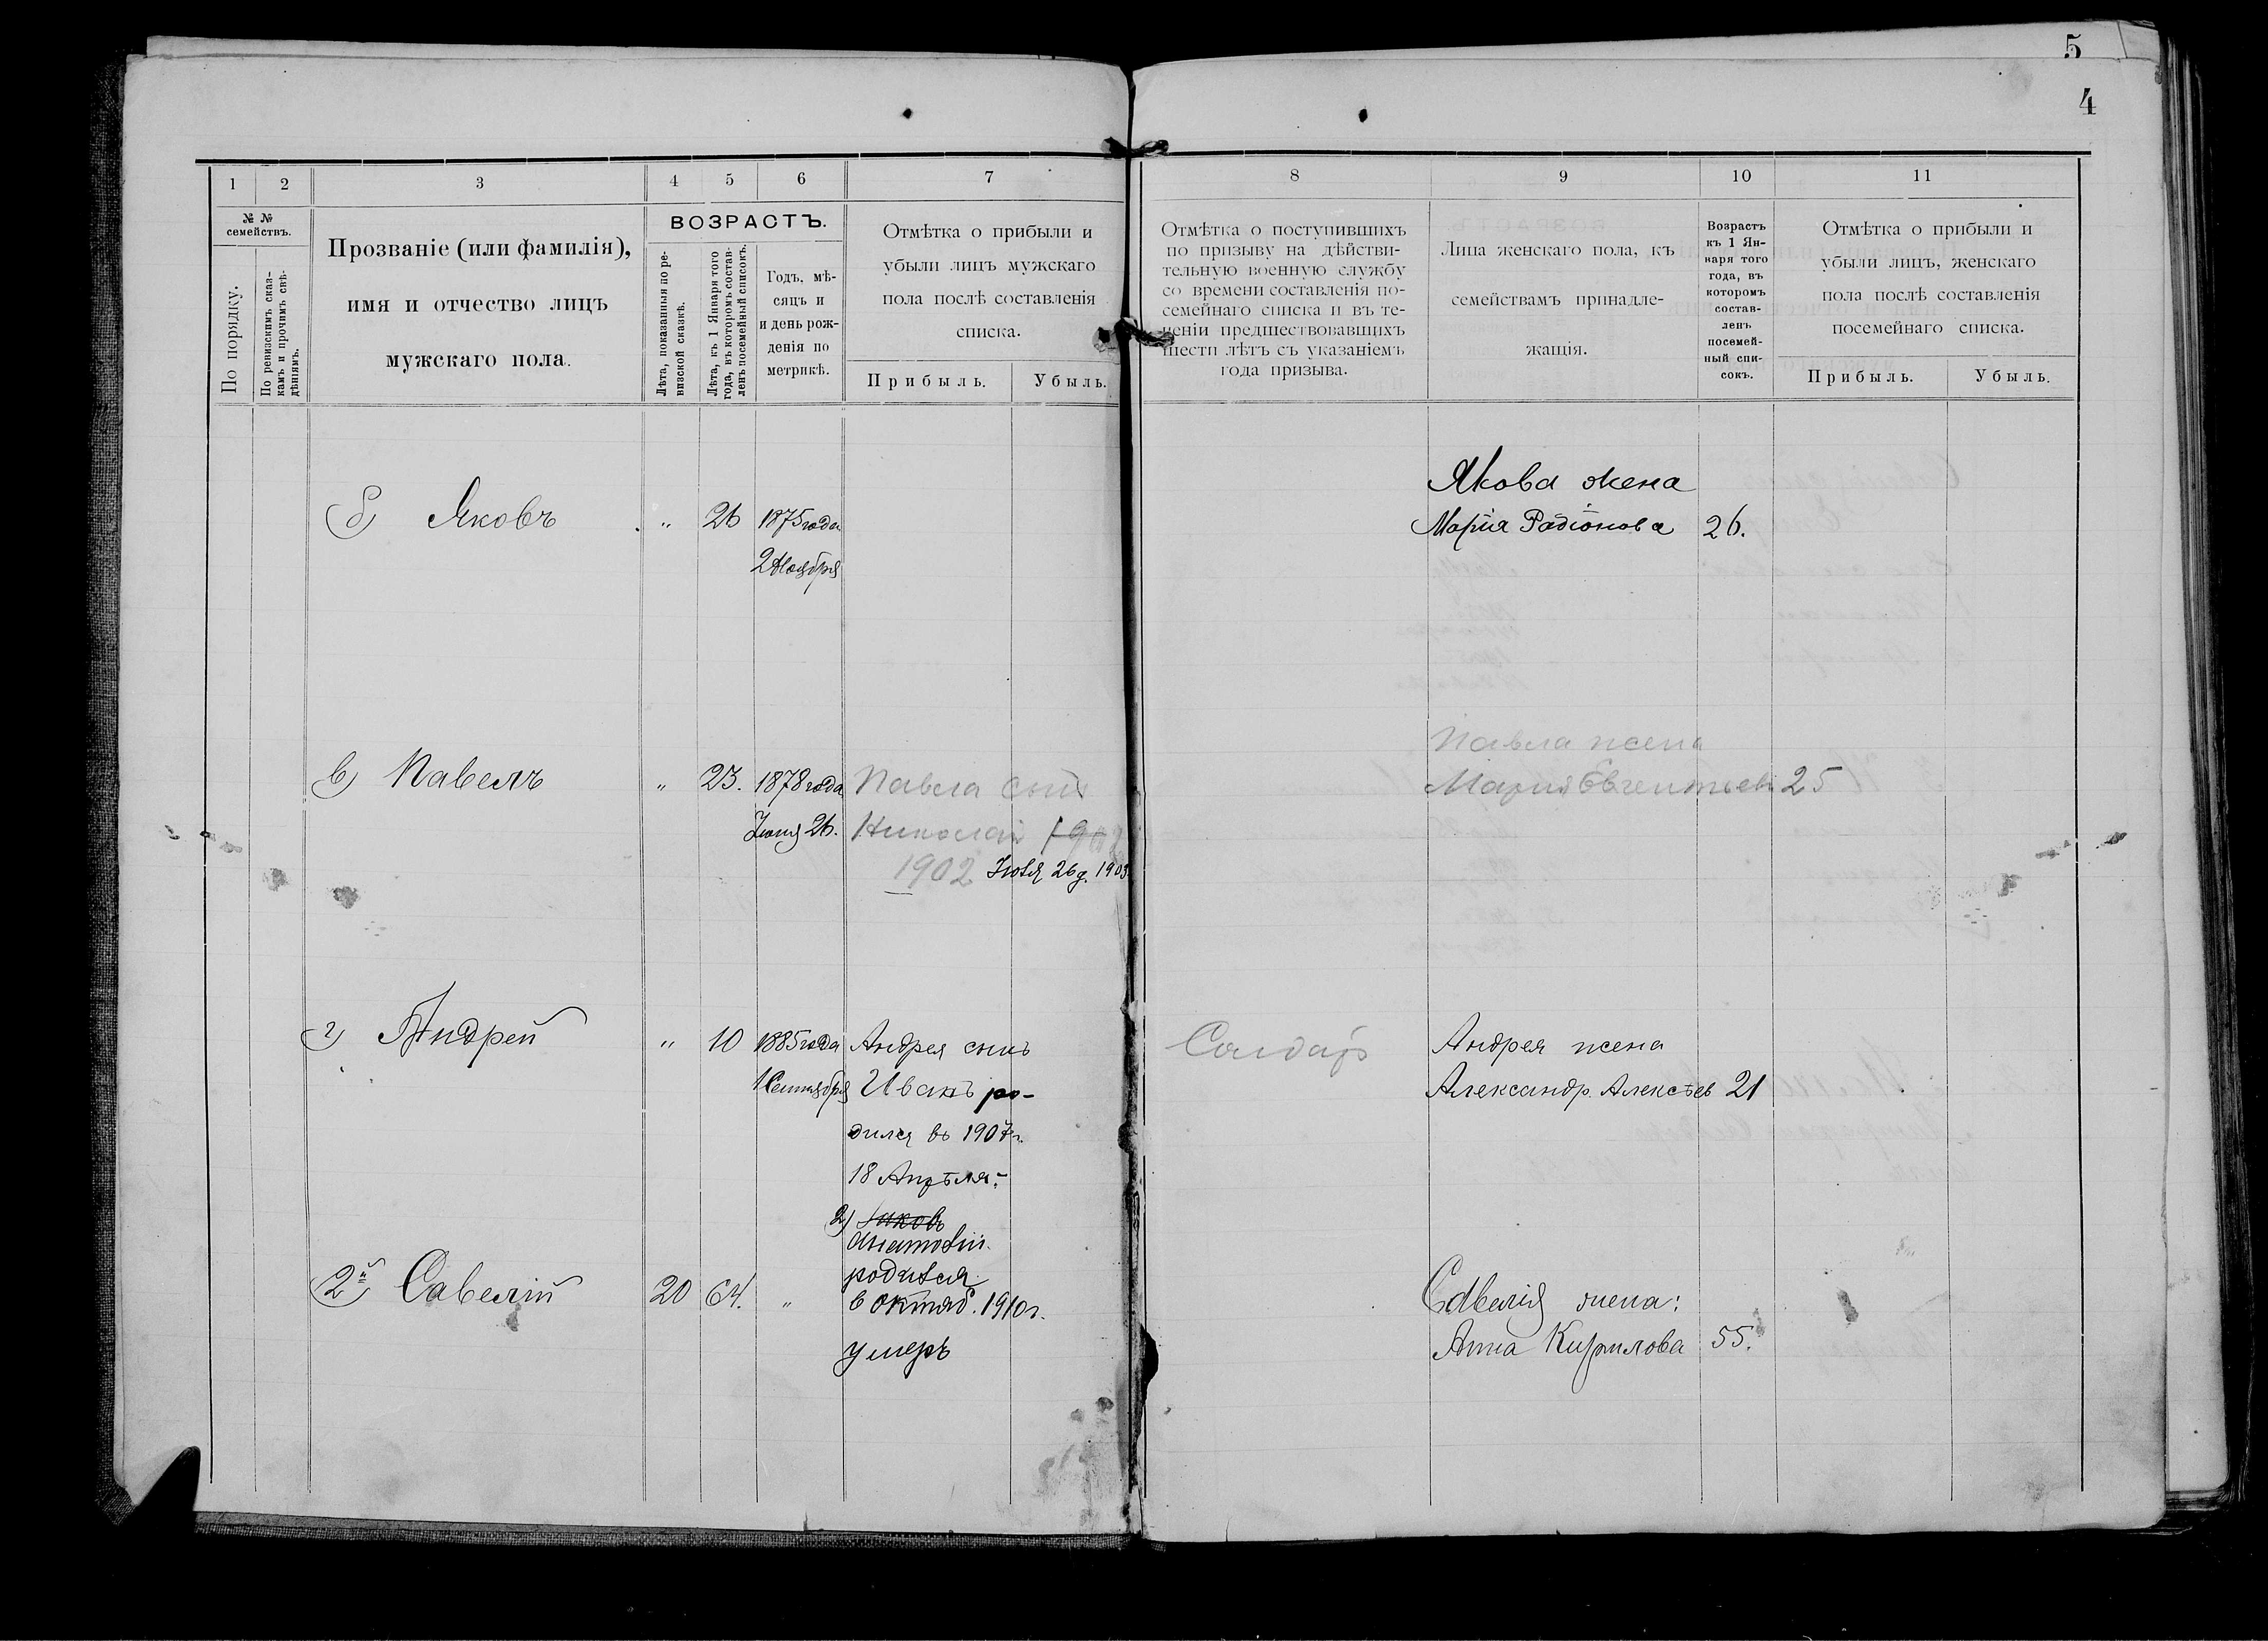 5
4
1 2 3 4 5 6 7
№ №
семействъ.
По порядку.
По ревизскимъ сказ-
камъ и прочимъ свѣ-
дѣніямъ.
Прозваніе (или фамилія),
имя и отчество лицъ
мужскаго пола.
ВОЗРАСТЪ.
Лѣта, показанныя по ре-
визской сказкѣ.
Лѣта, къ 1 Января того
года, въ которомъ состав-
ленъ посемейный списокъ.
Годъ, мѣ-
сяцъ и
и день рож-
денія по
метрикѣ.
Отмѣтка о прибыли и
убыли лицъ мужскаго
пола послѣ составленія
списка.
Прибыль. Убыль.
б) Яковъ „ 26 1875 года
2 Ноября
в) Павелъ „ 23. 1878 года Павла сынъ
Іюня 26. Николай 1902
1902 Іюля 26 д. 1903
г) Андрей „ 10 1885 года Андрея сынъ
1 Сентября Иванъ ро-
дился въ 1907 г.
18 Апрѣля:
2) Яковъ
Анатолій
родился
2й Савелій 20 64. „ в октяб. 1910 г.
умеръ
8 9 10 11
Отмѣтка о поступившихъ
по призыву на дѣйстви-
тельную военную службу
со времени составленія по-
семейнаго списка и въ те-
ченіи предшествовавшихъ
шести лѣтъ съ указаніемъ
года призыва.
Лица женскаго пола, къ
семействамъ принадле-
жащія.
Возрастъ
къ 1 Ян-
варя того
года, въ
которомъ
состав-
ленъ
посемей-
ный спи-
сокъ.
Отмѣтка о прибыли и
убыли лицъ, женскаго
пола послѣ составленія
посемейнаго списка.
Прибыль. Убыль.
Якова жена
Марія Радіонова 26.
Павла жена
Мария 25
Солдатъ Андрея жена
Александр. Алексѣев 21
Савелія жена:
Анна Кирилова 55.